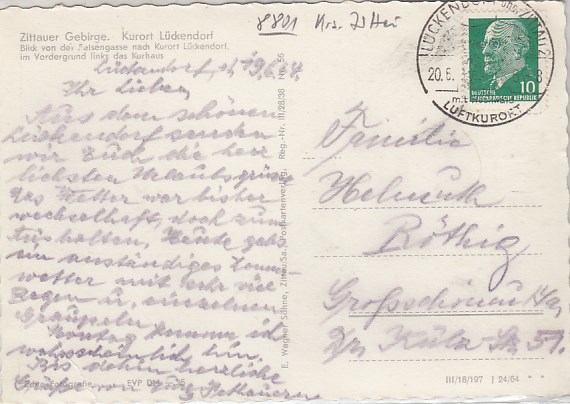 8801 Krs. Zittau
Zittauer Gebirge. Kurort Lückendorf
Blick von der Felsengasse nach Kurort Lückendorf,
im Vordergrund links das Kurhaus
Lückendorf, d. 19.6.64.
Ihr Lieben,
Aus dem schönen
Lückendorf senden
wir Euch die herz
lichsten Urlaubsgrüße
Das Wetter war bisher
wechselhaft, doch zum
Aushalten. Heute geht
ein anständiges
wetter mit sehr viel
Regen u. einzelnen
Graupeln
Montag komme ich
wahrscheinlich hin.
Bis dahin herzliche
Grüße von
Echte Fotografie EVP DM
E. Wagner Söhne, Zittau/Sa. Postkartenverlag. Reg.-Nr. III/28/38
LÜCKENDORF über ZITTAU 2
20.6.
LUFTKURORT
DEUTSCHE
DEMOKRATISCHE REPUBLIK
10
Familie
Helmuth
Röthig
Großschönau i/Sa.
Külz Str. 51.
III/18/197 I 24/64